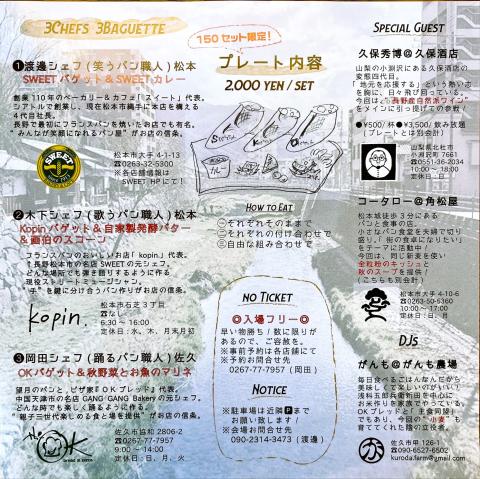 3CHEFS 3BAGUETTE
❶渡邊シェフ(笑うパン職人)松本
SWEET バゲット & SWEET カレー
創業110年のベーカリー&カフェ「スイート」代表。
シアトルで創業し、現在松本市縄手に本店を構える
4代目社長。
長野で最初にフランスパンを焼いたお店でも有名。
"みんなが笑顔になれるパン屋" がお店の信条。
SWEET
松本市大手 4-1-13
☎0263-32-5300
※各店舗情報は
SWEET HPにて!
❷木下シェフ(歌うパン職人)松本
Kopinバゲット&自家製発酵バター
&画伯のスコーン
フランスパンのおいしいお店「kopin」代表。
長野松本市の名店 SWEET の元シェフ。
どんな場所でも弾き語りするように作る
現役ストリートミュージシャン。
"手"を鍵に分け合うパン作りがお店の信条。
kopin.
松本市石芝3丁目
☎なし
6:30 〜 16:00
定休日:水、木、月末月初
❸岡田シェフ(踊るパン職人)佐久
OKバゲット&秋野菜とお魚のマリネ
望月のパンと、ピザ家『OKブレッド』代表。
中国天津市の名店 GANG GANG Bakeryの元シェフ。
どんな時でも楽しく踊るように作る。
"親子三世代楽しめる食と場を提供" がお店の信条。
OK
佐久市協和 2806-2
☎0267-77-7957
9:00 〜 14:00
定休日:日、月、火
150セット限定!
プレート内容
2,000 YEN / SET
HOW TO EAT
㊀それぞれそのままで
㊁それぞれの付け合わせで
㊂自由な組み合わせで
NO TICKET
◎入場フリー◎
早い物勝ち / 数に限りが
あるので、ご容赦を。
※事前予約は各店舗にて
※予約お問合せ先
0267-77-7957(岡田)
NOTICE
※駐車場は近隣🅿まで
お願い致します!
※会場お問合せ先
090-2314-3473(渡邊)
SPECIAL GUEST
久保秀博@久保酒店
山梨の小淵沢にある久保酒店の
変態四代目。
「地元を応援する」という熱い志
を胸に、日々飛び回っている。
今回は、"長野産自然派ワイン"
をメインに引っ提げての参戦!
●¥500/杯 ●¥3,500/飲み放題
(プレートとは別会計)
山梨県北杜市
小淵沢町 7661
☎0551-36-2034
10:00 〜 18:00
定休日:日
コータロー@角松屋
松本城徒歩3分にある
パンと食事の店。
小さなパン食堂を夫婦で切り
盛り。「街の食卓になりたい」
をテーマに活動中!
今回は、同じ新麦を使い
全粒粉のキッシュと
秋のスープを提供!
(こちらも別会計)
松本市大手 4-10-6
☎0263-50-5360
10:00 〜 16:00
定休日:日、月
DJs
がんも@がんも農場
毎日食べるごはんなんだから
美味しくて楽しいのがいい!
浅科五郎兵衛新田を中心に
お米作りを家族でやっている
OKブレッドと「圭食同盟」
でもあり、今回の"小麦"も
育ててくれた陰の立役者。
佐久市甲 126-1
☎090-6527-6502
kuroda.farm@gmail.com